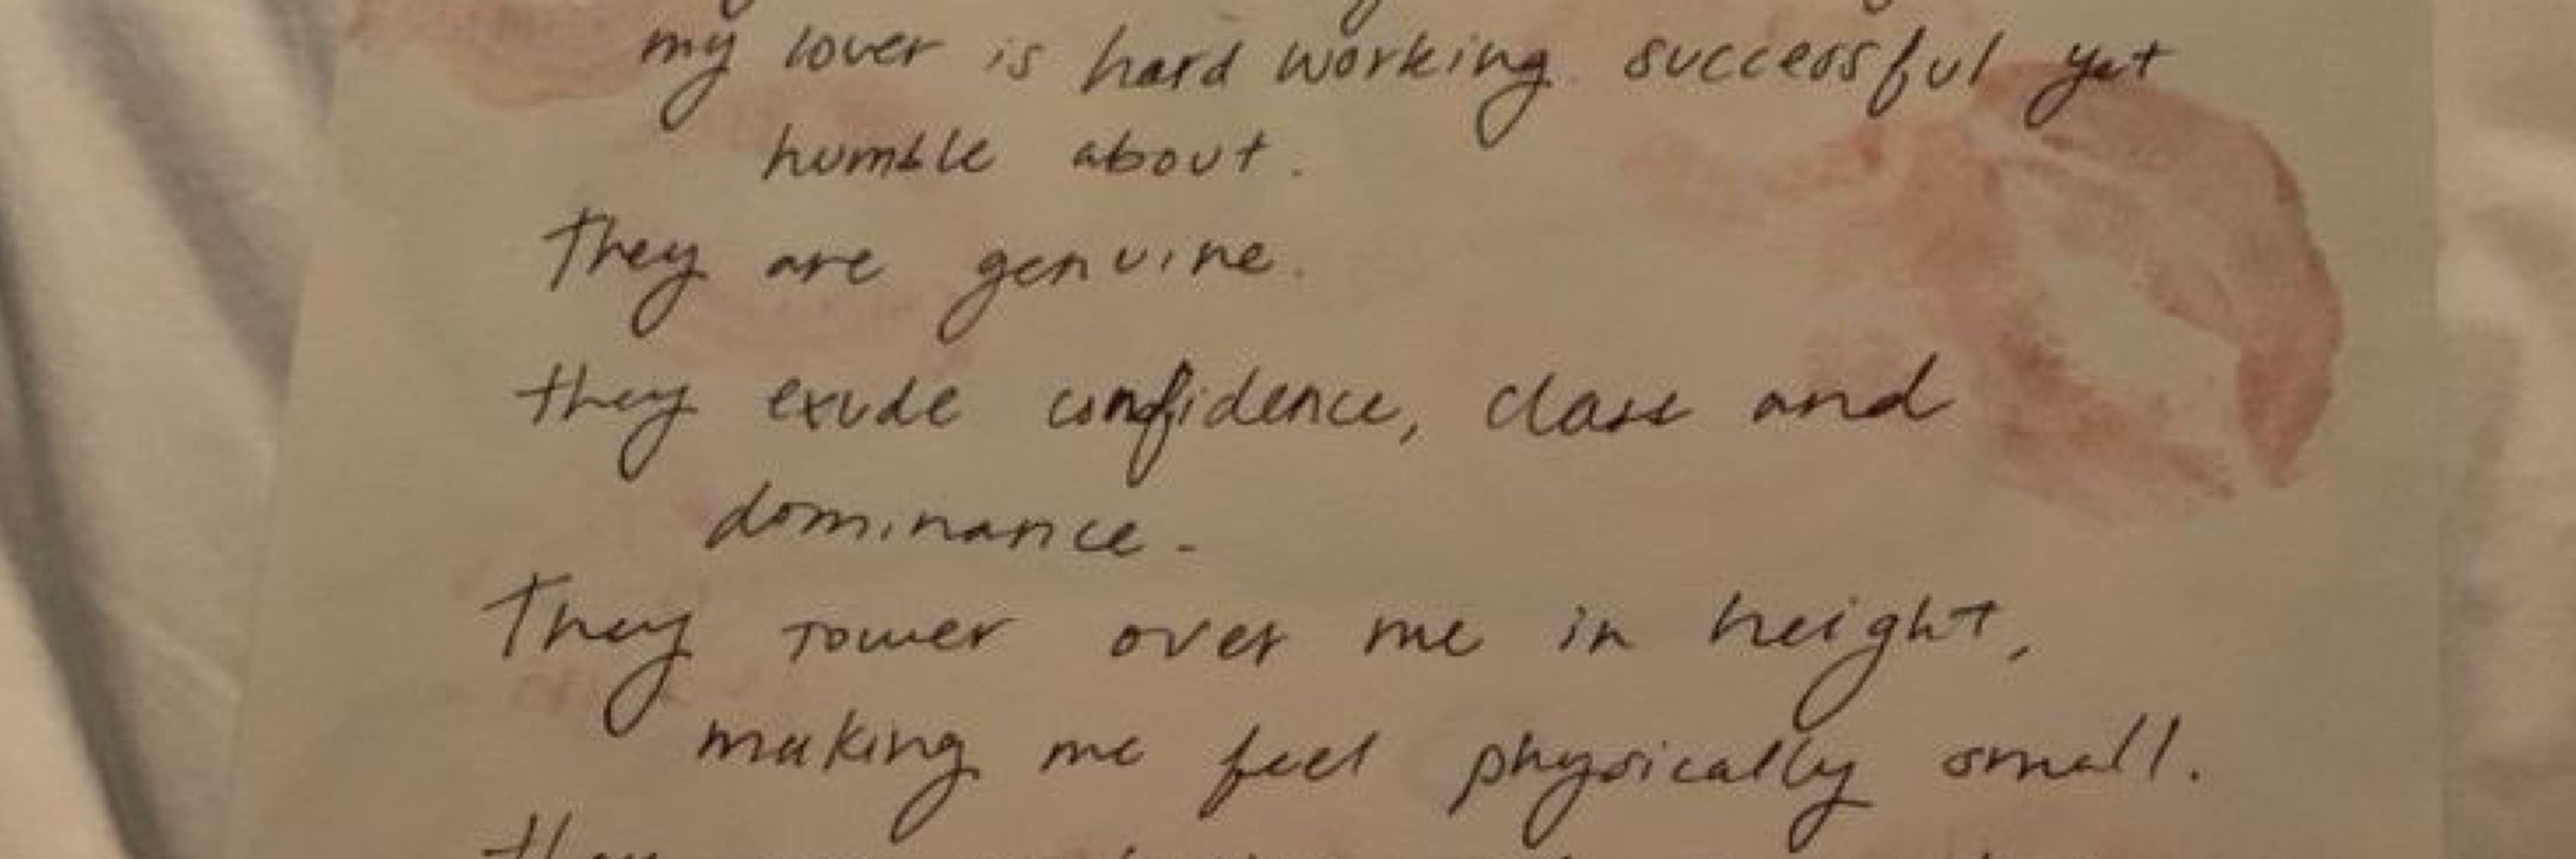 my lover is hard working successful yet
humble about.
They are genuine.
they exude confidence, class and
dominance.
They tower over me in height,
making me feel physically small.
they